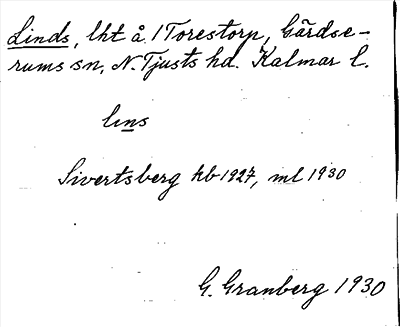 Linds, lht å 1 Torestorp, Gärdse-
rums sn, N. Tjusts hd. Kalmar l.
lins
Sivertsberg hb 1927, ml 1930
G. Granberg 1930